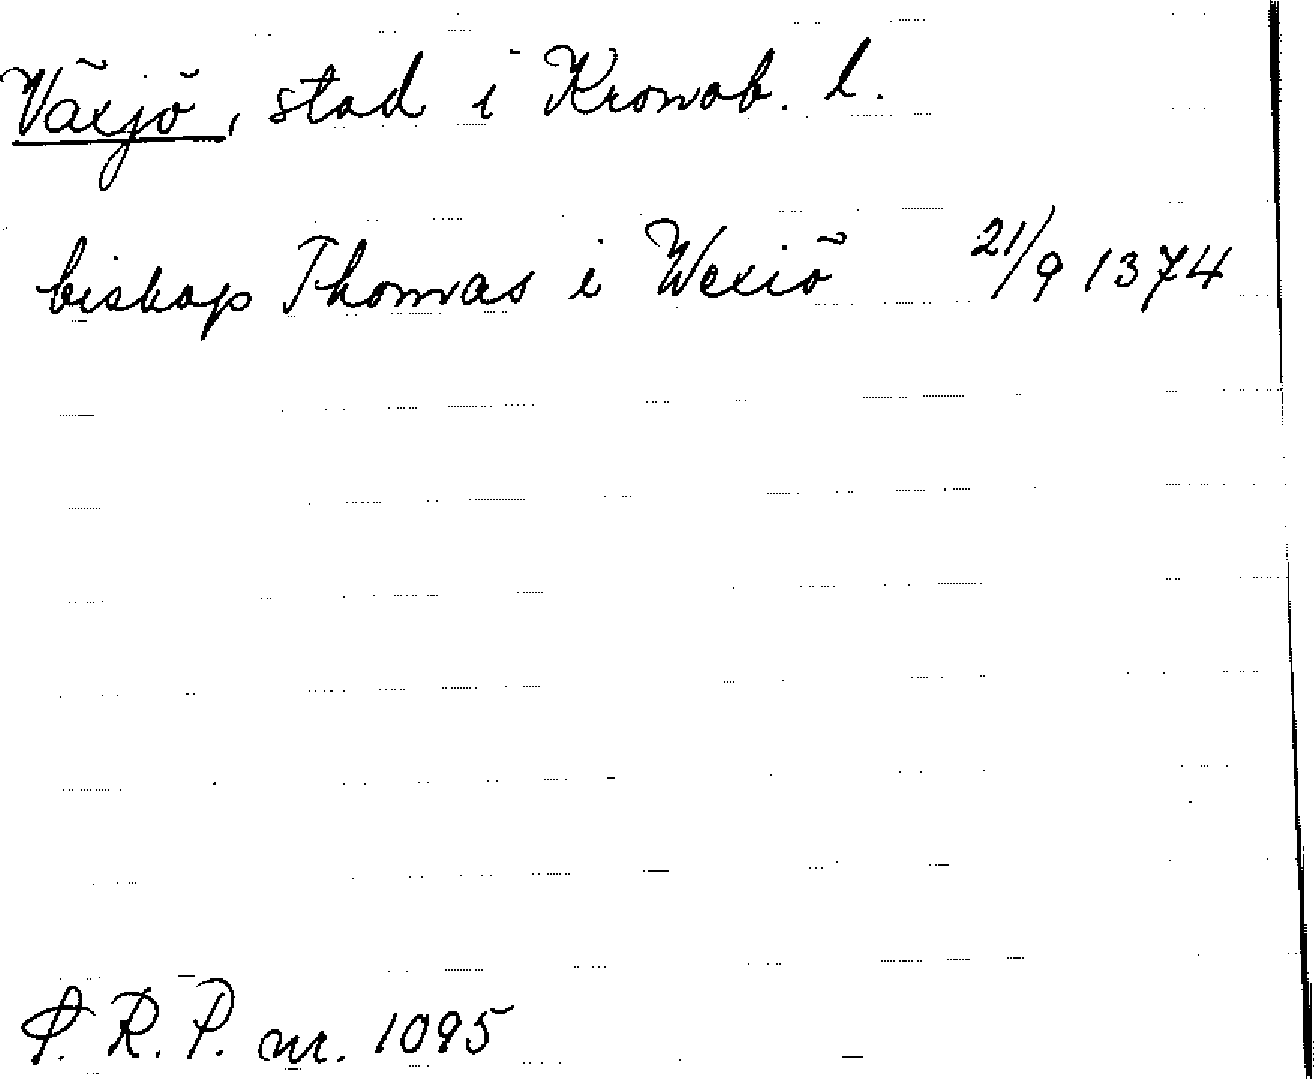 Växjö, stad i Kronob. l.
biskop Thomas i Wexiö 21/9 1374
P. R. P. nr. 1095